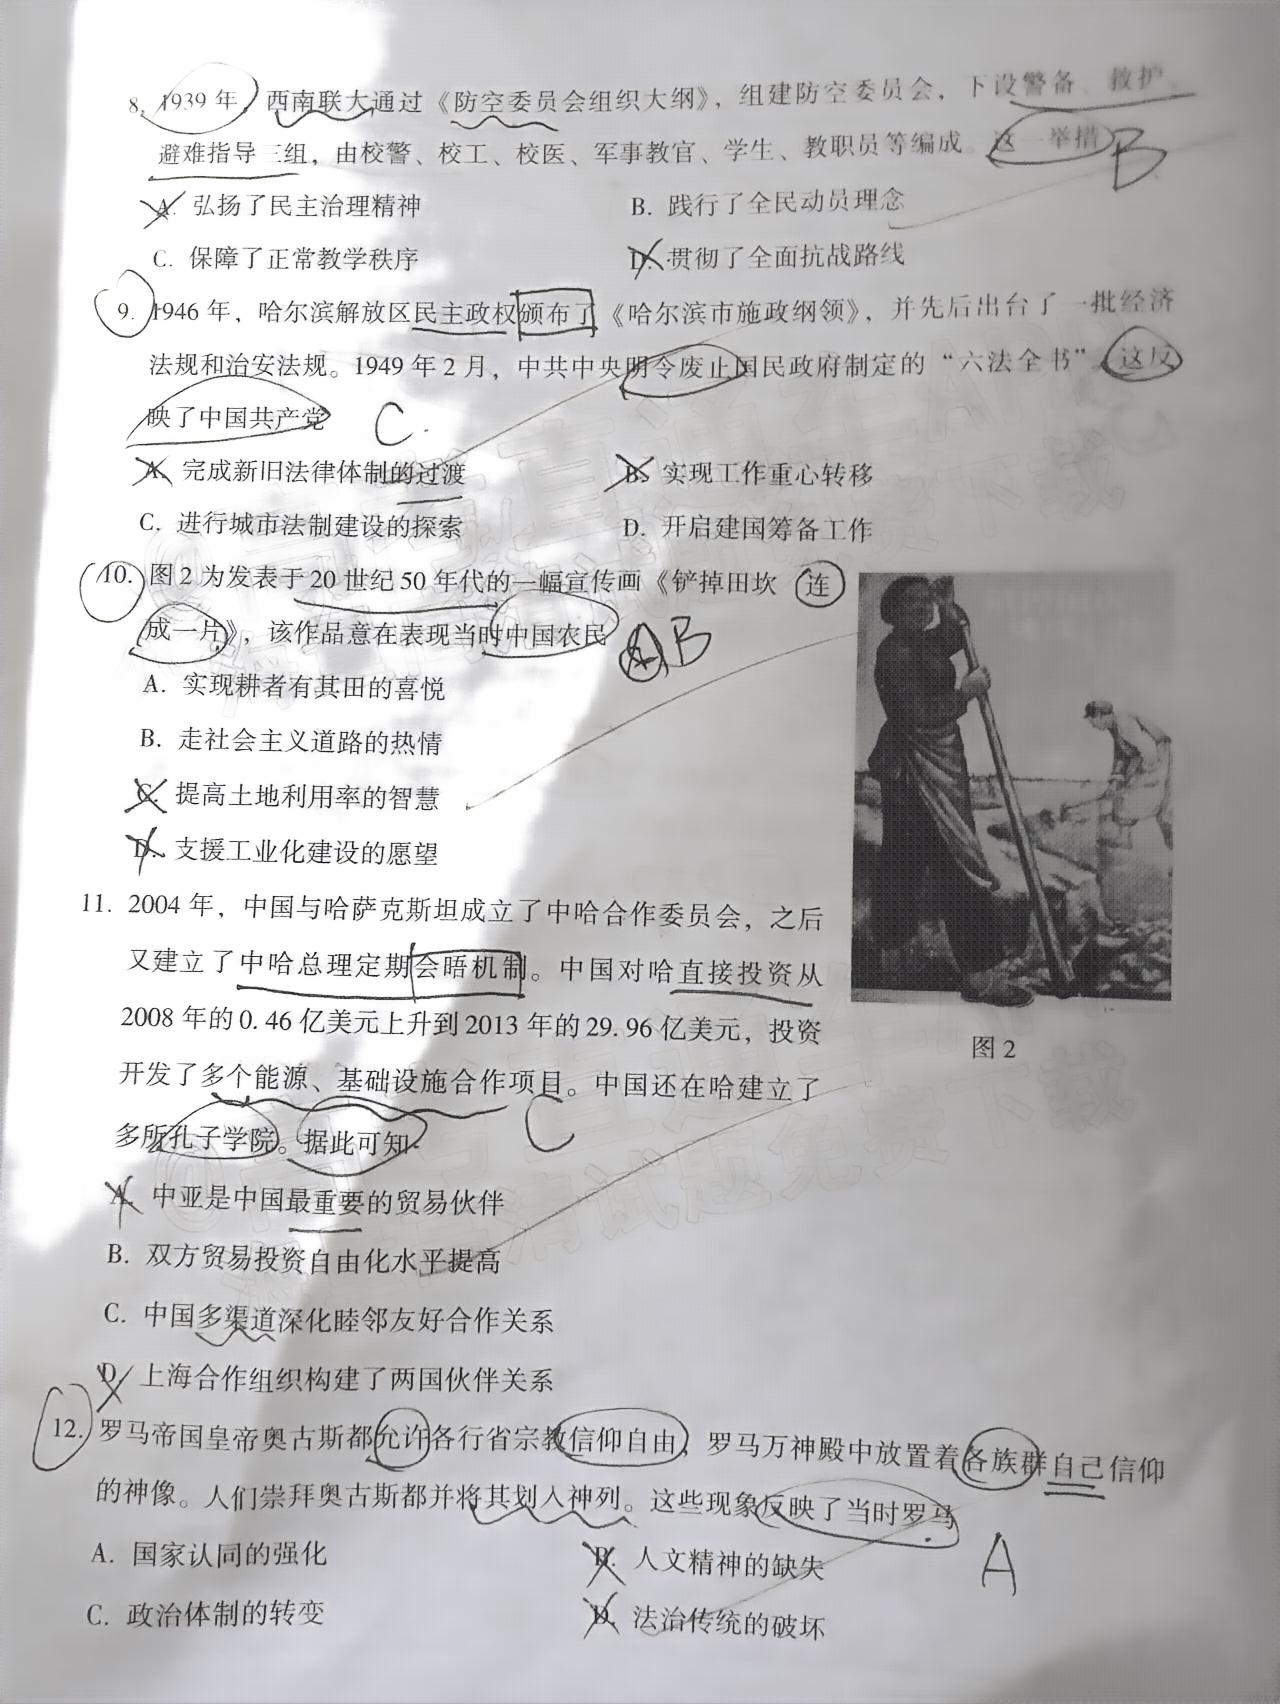 8. 1939年，西南联大通过《防空委员会组织大纲》，组建防空委员会，下设警备、救护、
避难指导三组，由校警、校工、校医、军事教官、学生、教职员等编成。这一举措
B
A. 弘扬了民主治理精神
B. 践行了全民动员理念
C. 保障了正常教学秩序
D. 贯彻了全面抗战路线
9. 1946年，哈尔滨解放区民主政权颁布了《哈尔滨市施政纲领》，并先后出台了一批经济
法规和治安法规。1949年2月，中共中央明令废止国民政府制定的“六法全书”。这反
映了中国共产党
C.
A. 完成新旧法律体制的过渡
B. 实现工作重心转移
C. 进行城市法制建设的探索
D. 开启建国筹备工作
10. 图2为发表于20世纪50年代的一幅宣传画《铲掉田坎 连
成一片》，该作品意在表现当时中国农民
AB
A. 实现耕者有其田的喜悦
B. 走社会主义道路的热情
C. 提高土地利用率的智慧
D. 支援工业化建设的愿望
图2
11. 2004年，中国与哈萨克斯坦成立了中哈合作委员会，之后
又建立了中哈总理定期会晤机制。中国对哈直接投资从
2008年的0.46亿美元上升到2013年的29.96亿美元，投资
开发了多个能源、基础设施合作项目。中国还在哈建立了
多所孔子学院。据此可知
C
A. 中亚是中国最重要的贸易伙伴
B. 双方贸易投资自由化水平提高
C. 中国多渠道深化睦邻友好合作关系
D. 上海合作组织构建了两国伙伴关系
12. 罗马帝国皇帝奥古斯都允许各行省宗教信仰自由，罗马万神殿中放置着各族群自己信仰
的神像。人们崇拜奥古斯都并将其划入神列。这些现象反映了当时罗马
A
A. 国家认同的强化
B. 人文精神的缺失
C. 政治体制的转变
D. 法治传统的破坏